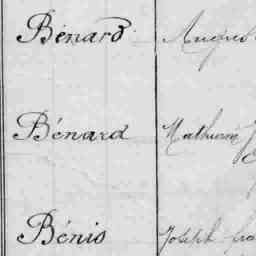 Bénard Augus
Bénard Mathurin J
Bénis Joseph fra